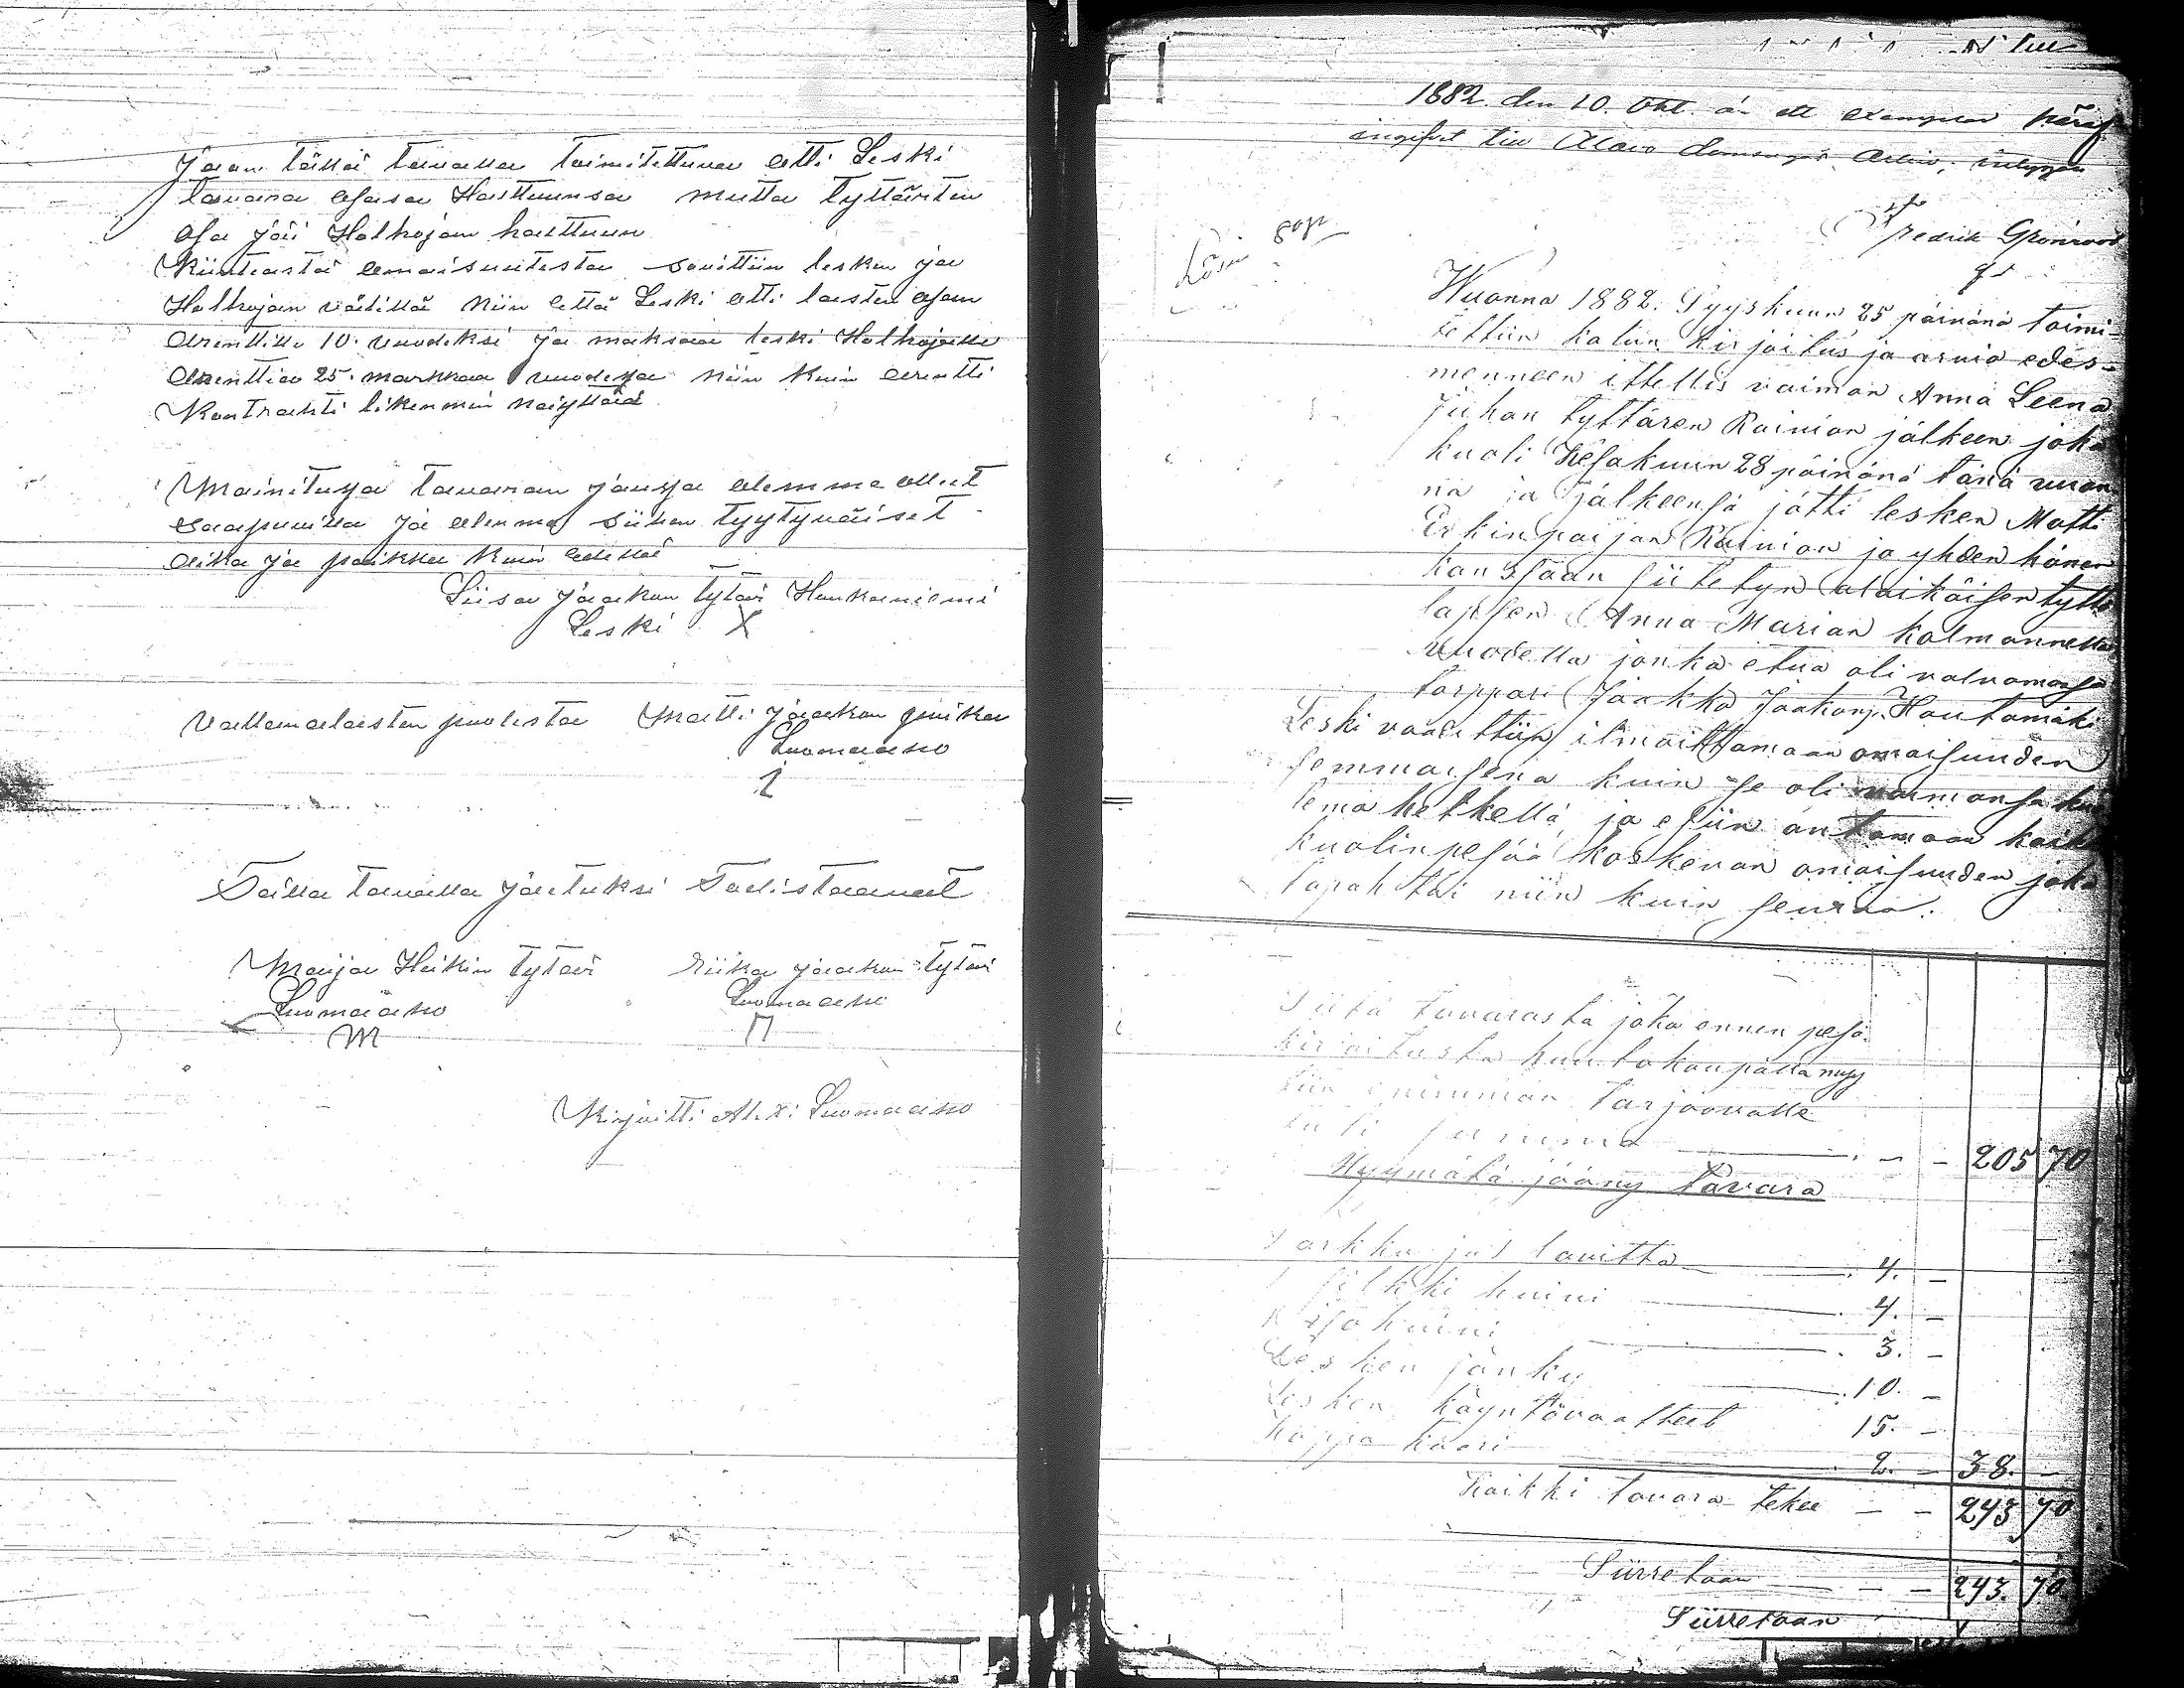 Jaon tällä tavalla toimitettuna otti Leski
tavara osasa Haltuunsa mutta tyttärten
Osa jäi Holhojan halttuun
Kiinteästä omaisuutesta sovittiin lesken ja
Holhojan välillä niin että Leski otti lasten osan
Arenttille 10. vuodeksi ja maksaa leski Holhojalle
Arenttia 25. markkaa vuodessa niin kuin arentti
Kontrahti likemmin näyttää
Mainitussa tavaran jaussa olemme ollet
saapuvilla ja olemma siihen tyytyväiset
Aika ja paikka kuin edellä
Liisa Jaakon tytär Haukaniemi
Leski X
Vallanalaisten puolesta Matti Jaakon poika
Luomaaho
Tällä tavalla jaetuksi Todistaavat
Maija Heikin tytär Riika Jaakon tytär
Luomaaho Luomaaho
M
Kirjoitti Luomaaho
1882. den 10. Okt. är ett exemplar häraf
ingifvet till Alavo domsagas Arkiv, intygar
Fredrik Grönroos
Lösen
Wuonna 1882. Syyskuun 25 päivänä toimi-
tettiin kalun kirjoitus ja arvio edes-
menneen ittellis vaimon Anna Leena
Juhan tyttären Rainion jälkeen joka
kuoli Kesäkuun 28 päivänä tänä vuon-
na ja jälkeensä jätti lesken Matti
Erkinpoijan Rainion ja yhden hänen
kanssaan siitetyn alaikäisen tyttö
lapsen Anna Marian kolmannella
vuodella jonka etua oli valvomassa
torppari Jaakko Jaakonp. Hautamäki
Leski vaadittiin ilmoittamaan omaisuuden
semmaisena kuin se oli vaimonsa kuo
lema hetkellä ja esiin antamaan kaik
kuolinpesää koskevan omaisuuden joka
tapahtui niin kuin seuraa.
Siitä tavarasta joka ennen pesä-
kirjoitusta huutokaupalla myy
tiin enimmän tarjoovalle
tuli summa — — 205 70
Myymätä jääny tavara
4. —
silkki huivi 4. —
huivi 3. —
Lesken 10. —
Lesken käyntövaatteet 15. —
2. — 38. —
Kaikki tavara tekee — — 243 70
Siirretään — — 243. 70
Siirretään